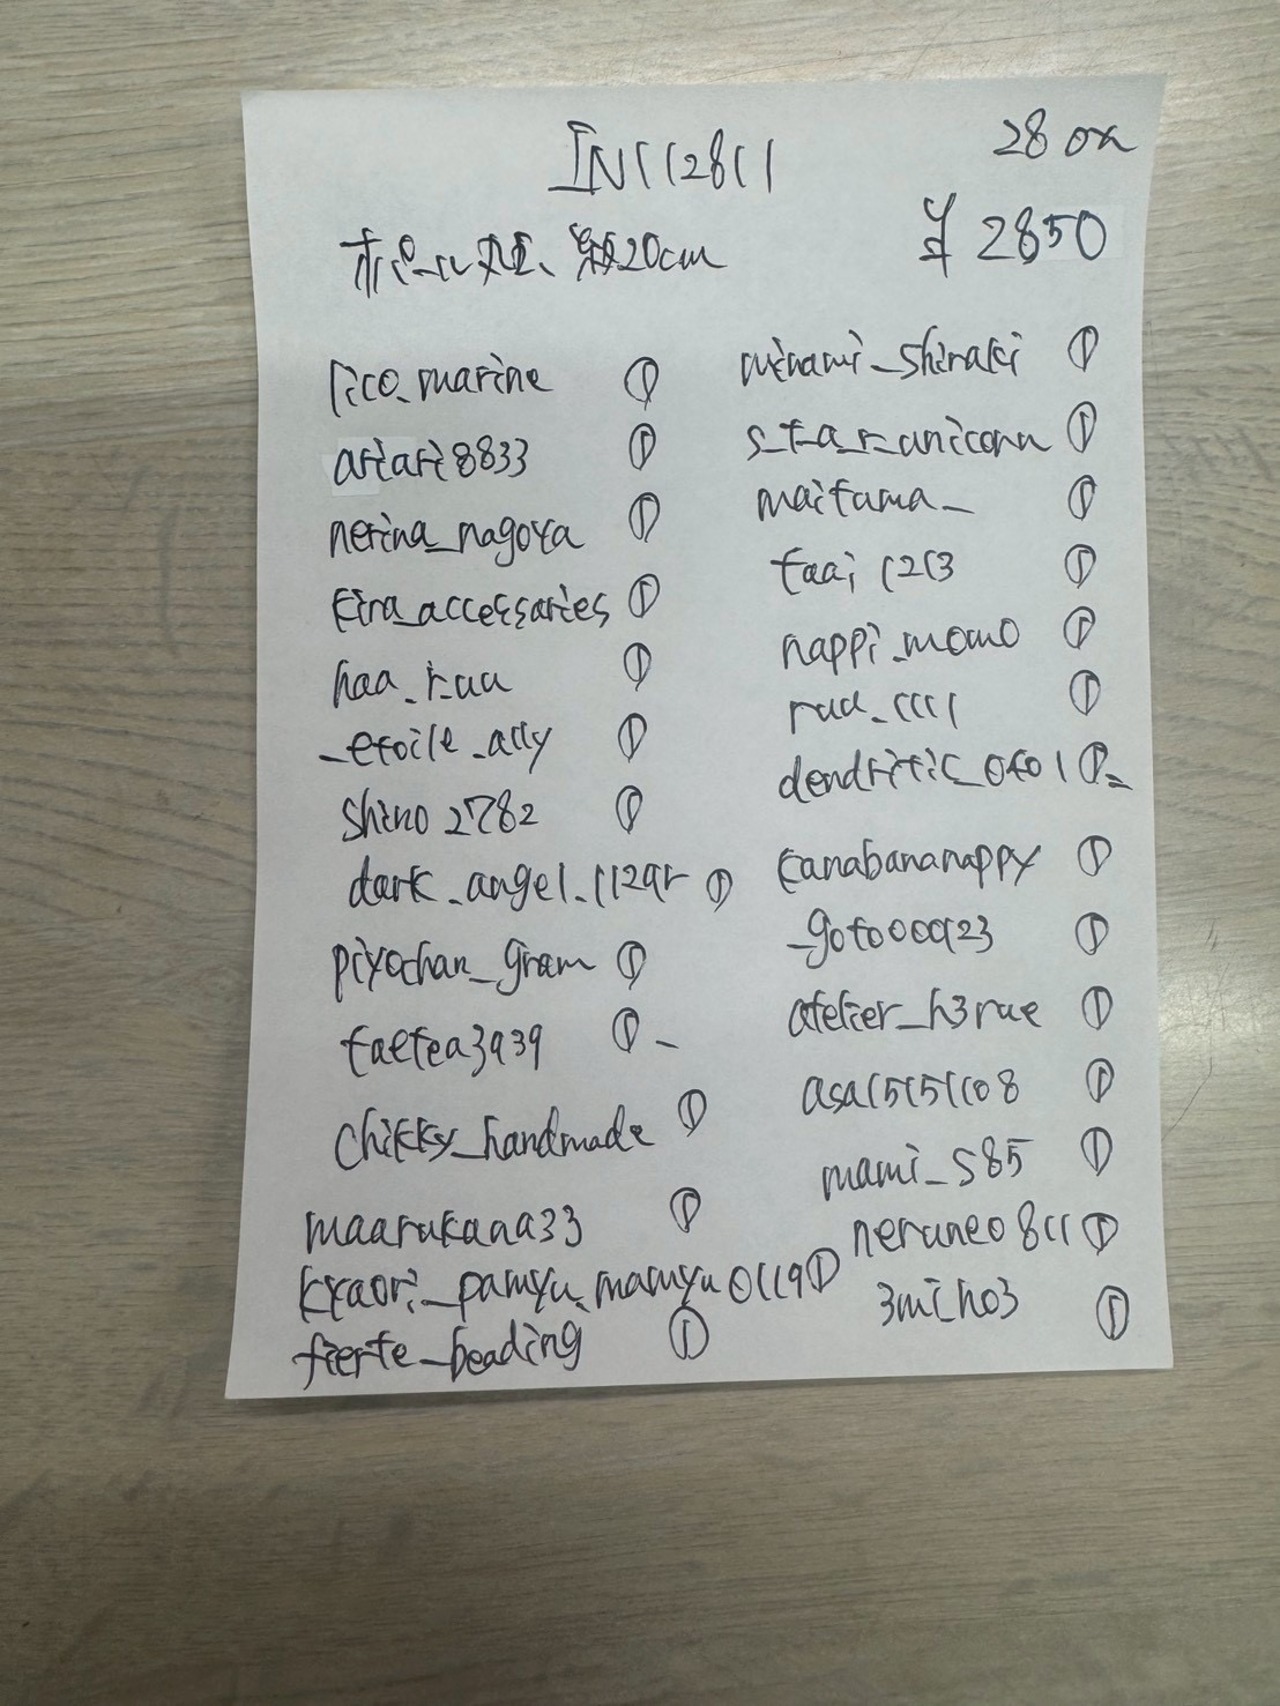 IN112811
28 ok
¥2850
オパール 短、 約20cm
lico_marine ①
ariari8833 ①
nerina_nagoya ①
kira_accessaries ①
haa_r_uu ①
_etoile_ally ①
shino2782 ①
dark_angel_1129r ①
piyochan_gram ①
taetea3939 ①
chikky_handmade ①
maarukana33 ①
kyaori_pamyu_mamyu0119 ①
fierte_beading ①
minami_shiraki ①
s_t_a_r_unicorn ①
maitama_ ①
taai1213 ①
nappi_momo ①
ruu_1111 ①
dendritic_0401 ①
kanabananappy ①
_goto000923 ①
atelier_h3rue ①
asa15151108 ①
mami_585 ①
neruneo811 ①
3miho3 ①